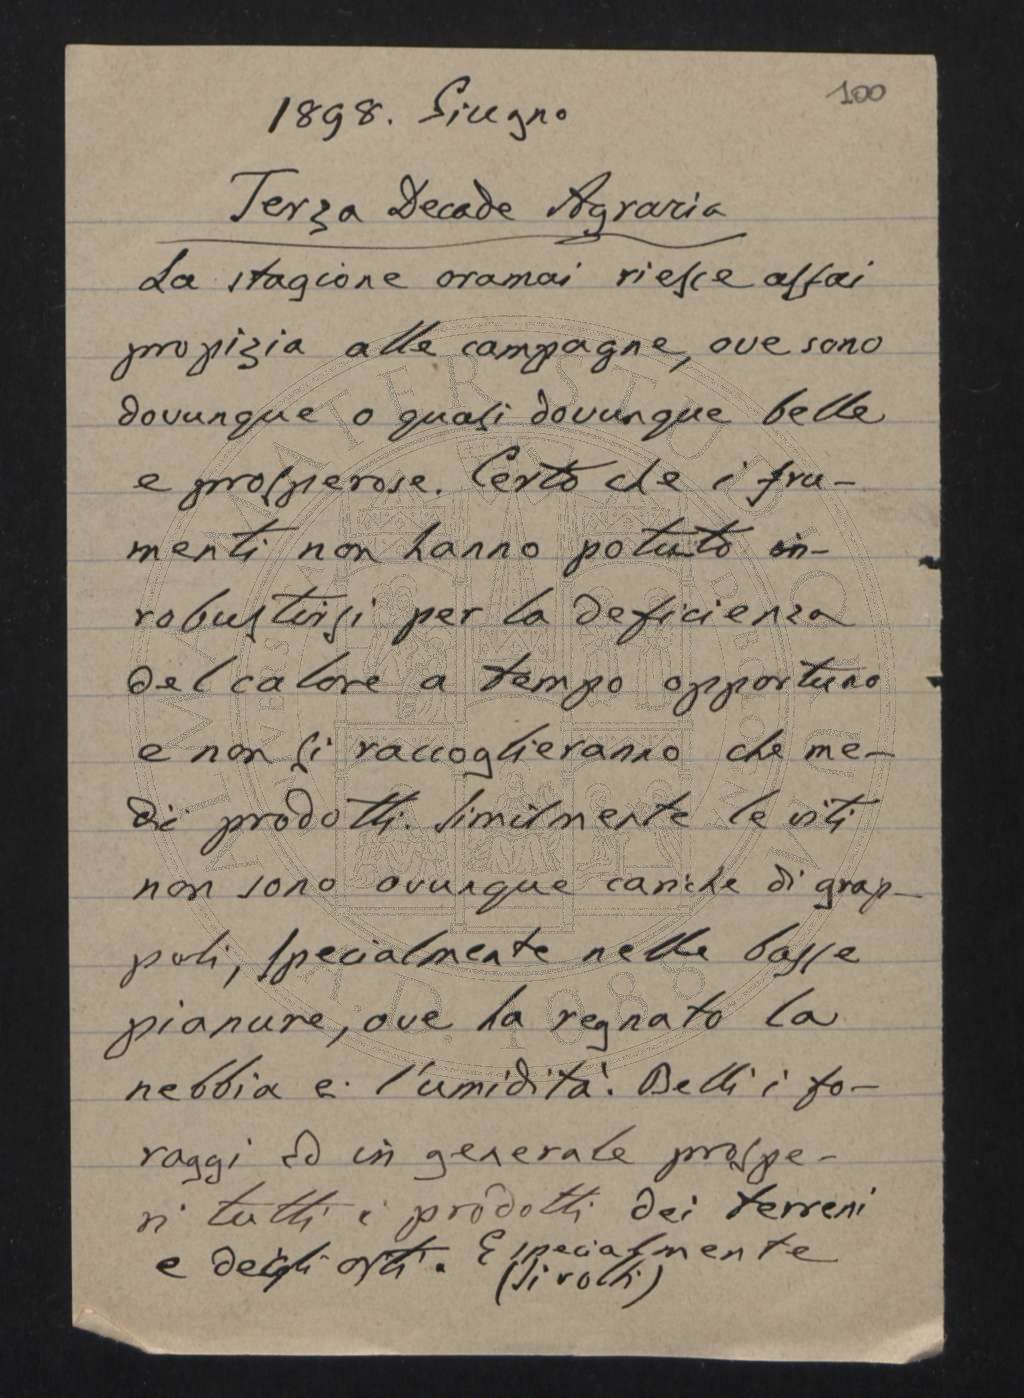 100
1898. Giugno
Terza Decade Agraria
La stagione oramai riesce assai
propizia alle campagne, ove sono
dovunque o quasi dovunque belle
e prosperose. Certo che i fru-
menti non hanno potuto in-
robustirsi per la deficienza
del calore a tempo opportuno
e non si raccoglieranno che me-
di prodotti. Similmente le viti
non sono ovunque cariche di grap-
poli, specialmente nelle basse
pianure, ove ha regnato la
nebbia e l'umidità. Belli i fo-
raggi ed in generale prospe-
ri tutti i prodotti dei terreni
e degli orti. Especialmente
ALMA MATER STUDIORUM
A.D. 1088